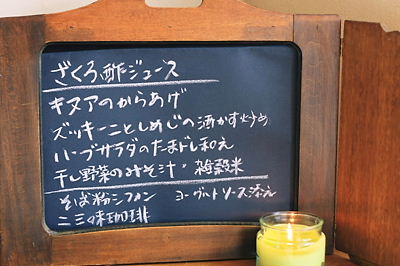 ざくろ酢ジュース
キヌアのからあげ
ズッキーニとしめじの酒かす炒め
ハーブサラダのたまドレ和え
干し野菜のみそ汁・雑穀米
そば粉シフォン ヨーグルトソース添え
二三味珈琲